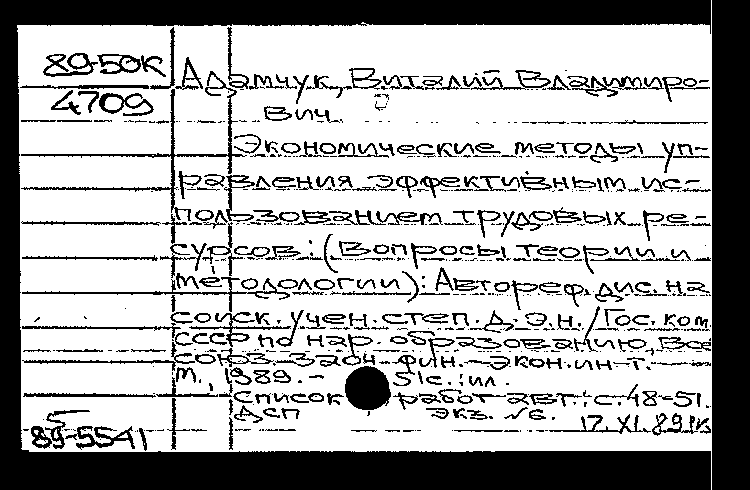 89-50к Адамчук, Виталий Владимиро-
4709 вич
Экономические методы уп-
равления эффективным ис-
пользованием трудовых ре-
сурсов: (Вопросы теории и
методологии): Автореф. дис. на
соиск. учен. степ. д. э. н. / Гос. ком
СССР по нар. образованию, Все
союз. заоч. фин.-экон. ин-т. -
М., 1989. - 51 с.: ил.
Список работ авт.: с. 48-51.
ДСП Экз. №6.
89-5541 17. XI. 89